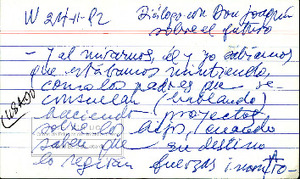 W 21-11-82 Diálogo con Don Joaquín
sobre el futuro
- y al mirarnos, él y yo sabíamos
que estábamos mintiendo,
como los padres que se
consuelan (hablando)
haciendo proyectos
sobre los hijos, cuando
saben que su destino
lo regirán fuerzas